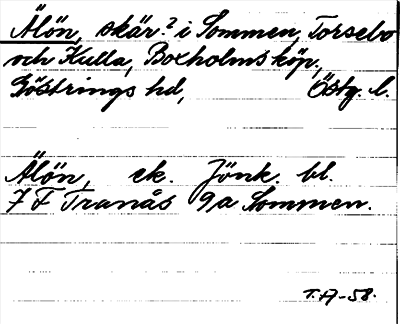 Älön, skär? i Sommen, Torsebo
och Kulla, Boxholms köp.,
Göstrings hd, Östg. l.
Älön, ek. Jönk. bl.
7 F Tranås 9a Sommen.
T.A-58.